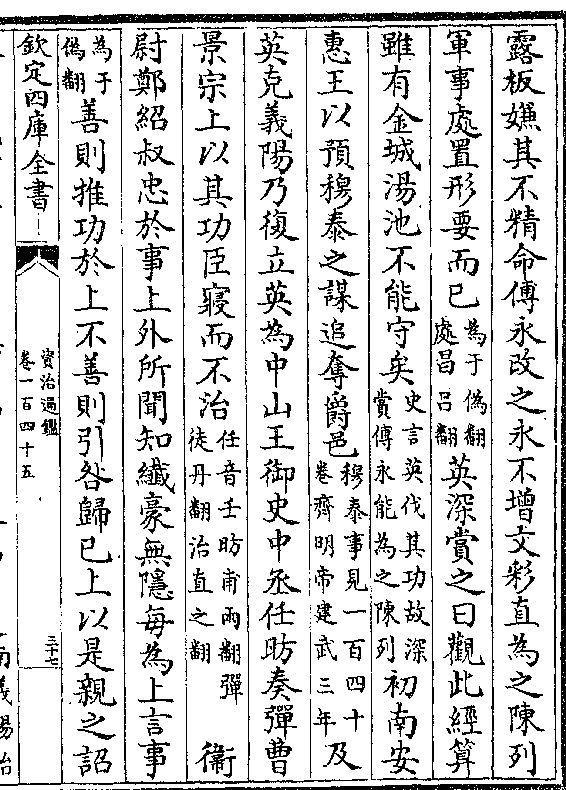 露板嫌其不精命傅永改之永不增文彩直為之陳列
軍事處置形要而已為于偽翻處昌呂翻英深賞之曰觀此經算
雖有金城湯池不能守矣史言英伐其功故深賞傅永能為之陳列初南安
惠王以預穆泰之謀追奪爵邑穆泰事見一百四十卷齊明帝建武三年及
英克義陽乃復立英為中山王御史中丞任昉奏彈曹
景宗上以其功臣寢而不治任音壬昉甫兩翻彈徒丹翻治直之翻衞
尉鄭紹叔忠於事上外所聞知纖豪無隱每為上言事
為于偽翻善則推功於上不善則引咎歸已上以是親之詔
欽定四庫全書
資治通鑑
卷一百四十五
三十七
南義陽治